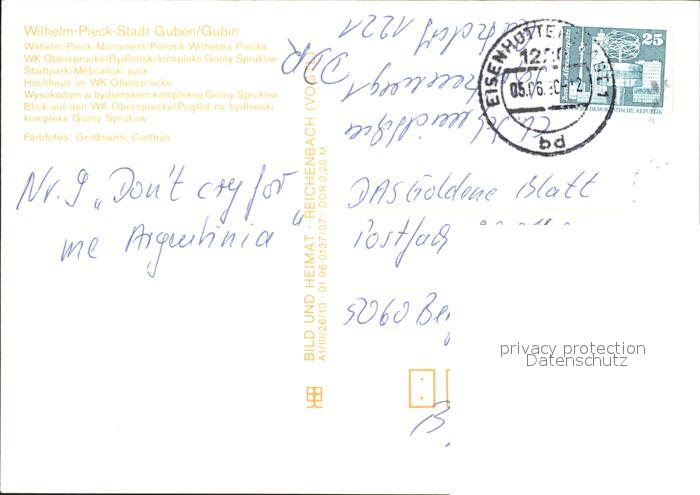 Wilhelm-Pieck-Stadt Guben/Gubin
Wilhelm-Pieck-Monument/Pomnik Wilhelma Piecka
WK Obersprucke/Bydleński kompleks Gorny Sprukow
Stadtpark/Měšćański park
Hochhaus im WK Obersprucke
Wysokodom w bydleńskem kompleksu Gorny Sprukow
Blick auf den WK Obersprucke/Poglěd na bydleński
kompleks Gorny Sprukow
Farbfotos: Großmann, Cottbus
Nr. 9 „Don't cry for
me Argentinia"
BILD UND HEIMAT · REICHENBACH (VOGTL)
A1/III/26/13 · 01 06 0137/07 · DDR 0,20 M
DDR
1221
EISENHÜTTEN
122
05.06.80
bd
25
DEMOKRATISCHE REPUBLIK
DAS Goldene Blatt
Postfach
5060 Be
privacy protection
Datenschutz